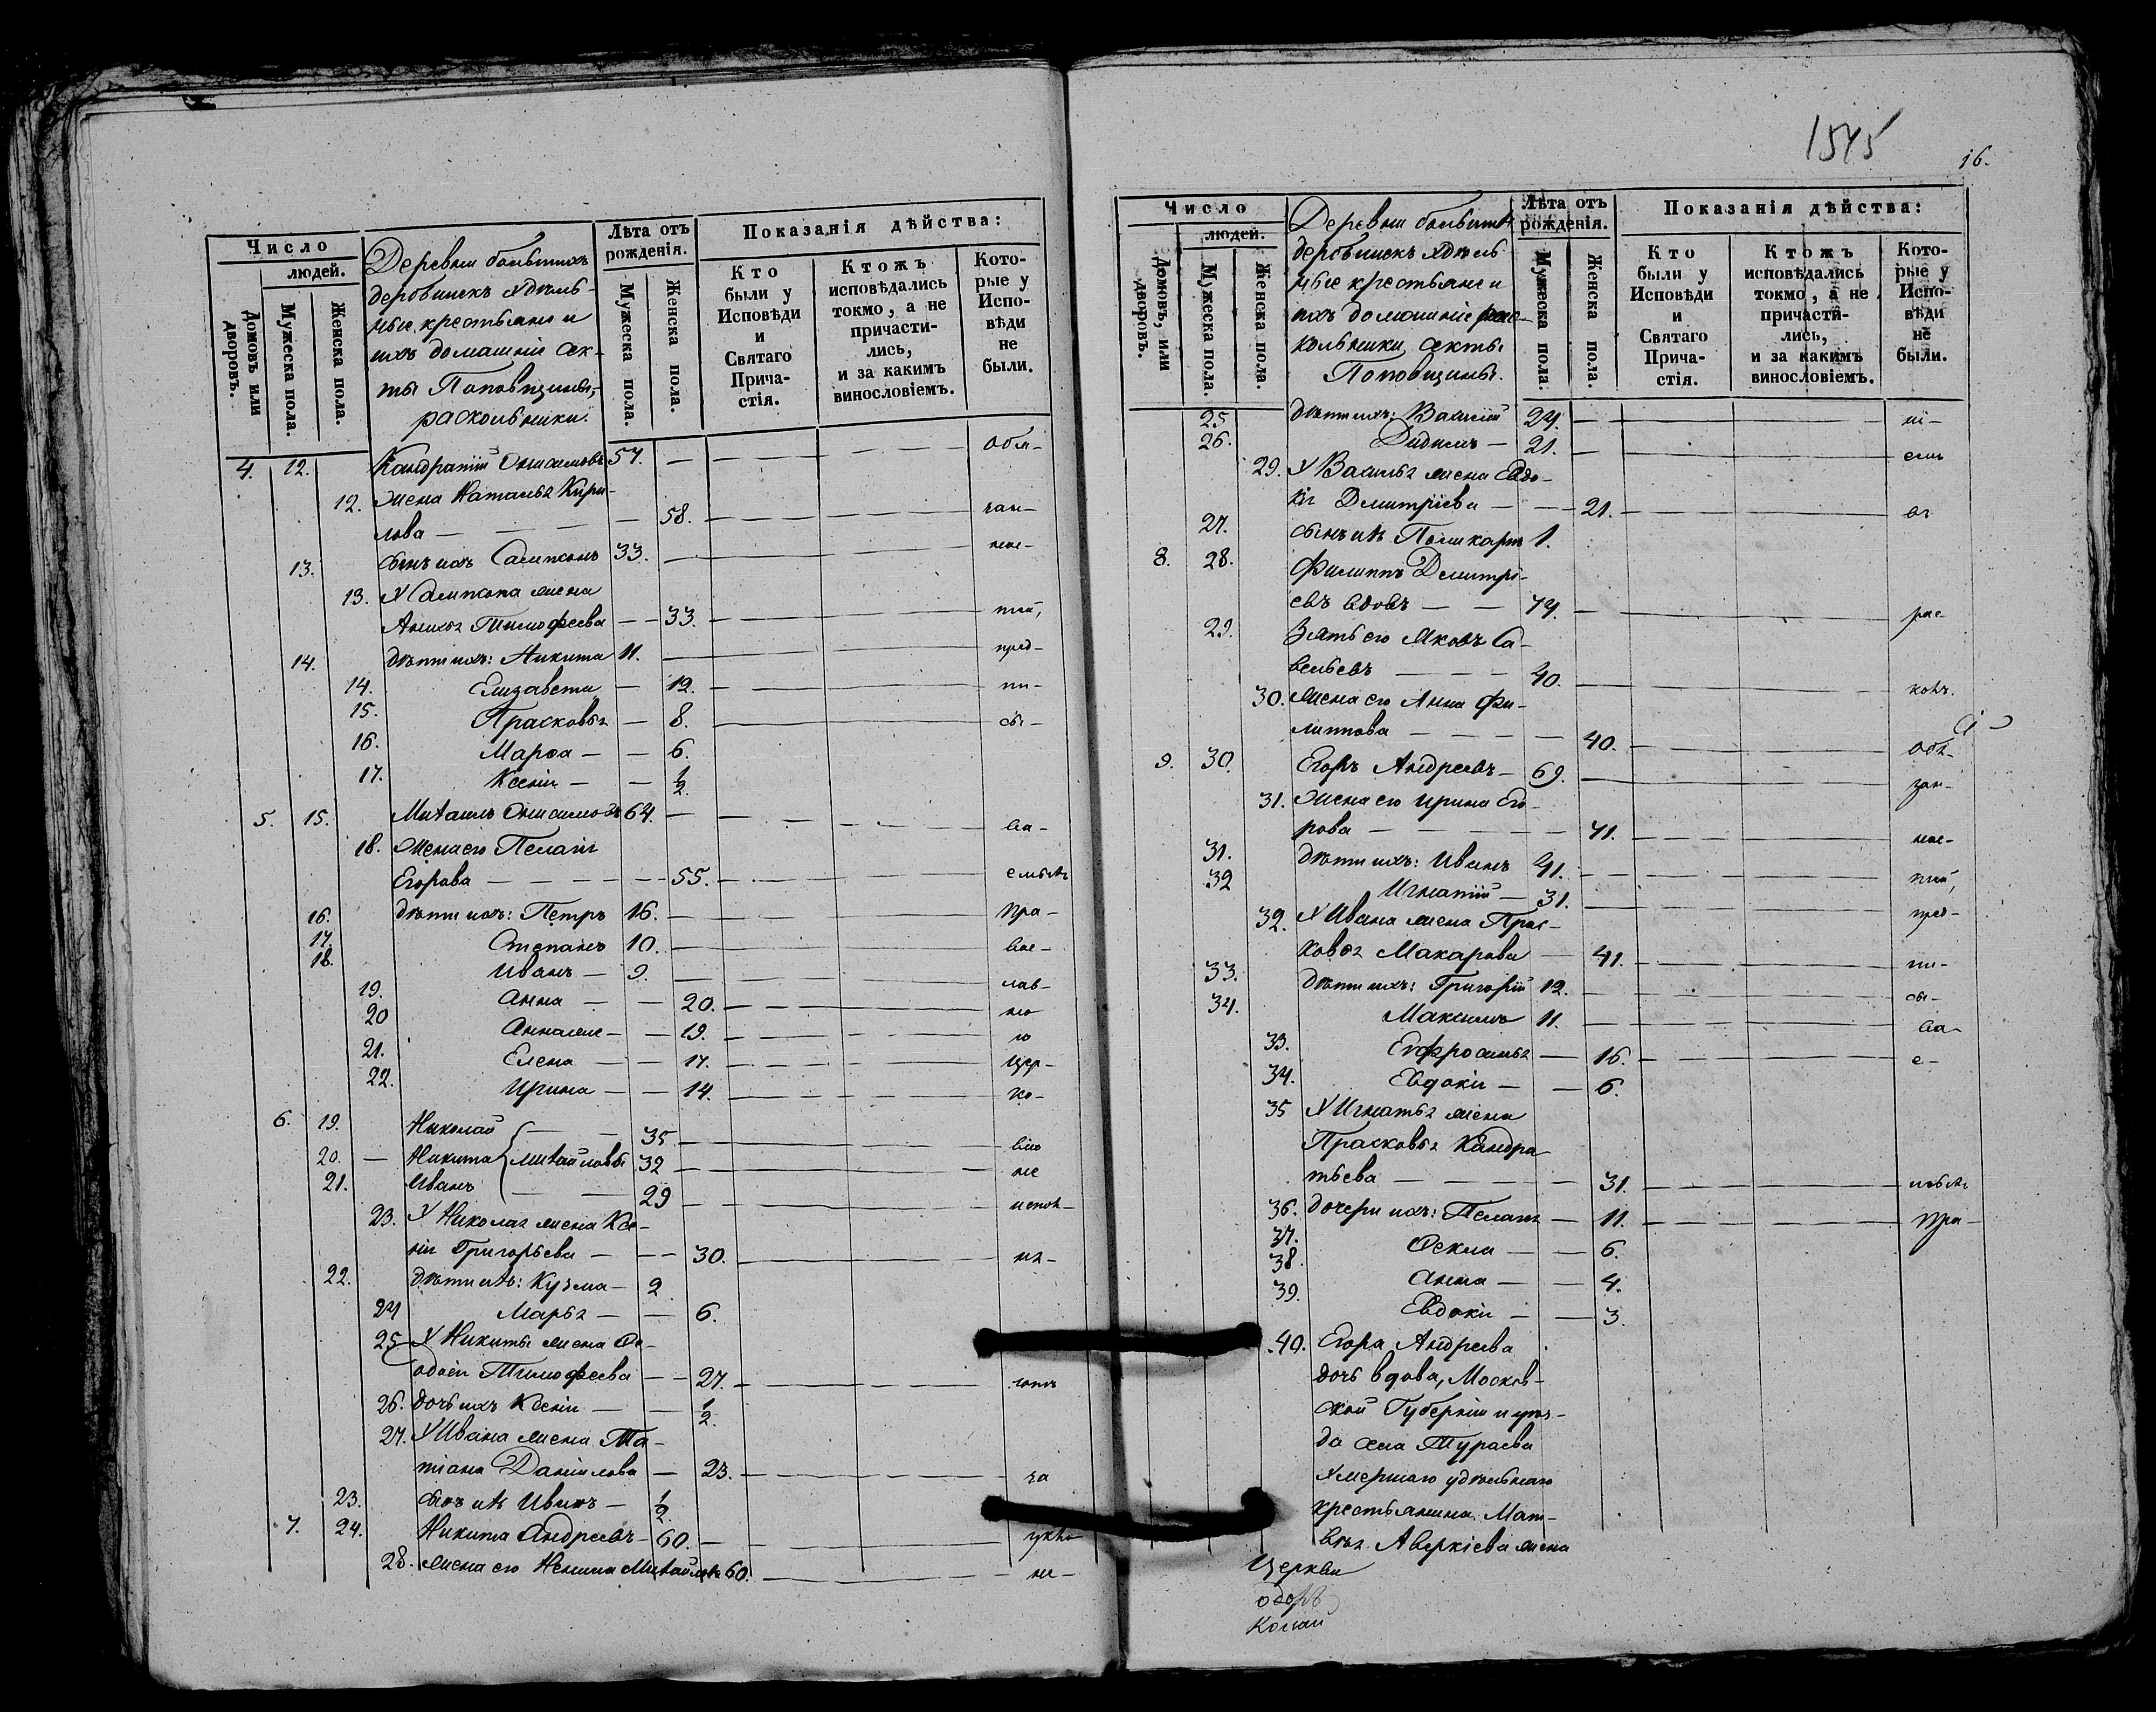 Число
людей.
Домовъ или дворовъ.
Мужеска пола.
Женска пола.
Деревни большихъ
деровинскъ удѣль-
ные крестьяне и
ихъ домашніе сек-
ты Поповщины,
раскольники.
Лѣта отъ рожденія.
Мужеска пола.
Женска пола.
Показанія дѣйства:
Кто были у Исповѣди и Святаго Прича-стія.
Ктожъ исповѣдались токмо, а не причасти-лись, и за какимъ винословіемъ.
Кото-рые у Испо-вѣди не были.
4. 12. Кандратій Онисимовъ 57. — — — — обл-
12. жена Наталья Кири-
лова — — — — 58. — — — —
13. сынъ ихъ Сампсонъ 33. — — — —
13. У Сампсона жена
Анисья Тимофеева — — 33. — — — — ний,
14. дѣти ихъ: Никита 11. — — — — пред-
14. Елизавета — 12. — — — — пи-
15. Прасковья — 8. — — — — сы-
16. Марѳа — — 6.
17. Ксенія — — 1/2.
5. 15. Михаилъ Онисимовъ 64. — — — — ва-
18. Жена его Пелагія
Егорова — — — — 55. — — — —
16. дѣти ихъ: Петръ 16. — — — — пра-
17. Степанъ 10. — — — — вос-
18. Иванъ — 9. — — — — лав-
19. Анна — — 20. — — — — ною
20 — — 19. — — — — ю
21. Елена — — 17. — — — — цер-
22. Ирина — — 14. — — — — ко-
6. 19. Николай — — 35 — — — — вію
20. — Никита Михайловы 32 — — — — не
21. Иванъ — — 29 — — — —
23. У Николая жена Ксе-
нія Григорьева — — — 30. — — — —
22. дѣти ихъ: Кузма — 2
24 Марья — — 6.
25 У Никиты жена Ѳе-
одосія Тимофеева — — 27. — — — —
26. дочь ихъ Ксенія — — 1/2.
27. У Ивана жена Та-
тіана Даніилова — 23. — — — — за
23. сынъ ихъ Иванъ — 1/2.
7. 24. Никита Андреевъ — 60. — — — —
28. жена его Михайлова 60. — — — —
1545
16.
Число
людей.
Домовъ, или дворовъ.
Мужеска пола.
Женска пола.
Деревни большихъ
деровинскъ удѣль
ные крестьяне и
ихъ домашніе рас-
кольники, секты
Поповщины.
Лѣта отъ рожденія.
Мужеска пола.
Женска пола.
Показанія дѣйства:
Кто были у Исповѣди и Святаго Прича-стія.
Ктожъ исповѣдались токмо, а не причасти-лись, и за какимъ винословіемъ.
Кото-рые у Испо-вѣди не были.
25 дѣти ихъ: Василій 24. — — — —
26. Дидимъ — 21. — — — —
29. У Василья жена Евдо-
кія Дмитріева — — — 21. — — — —
27. сынъ ихъ Поликарпъ 1.
8. 28. Филиппъ Дмитрі-
евъ вдовъ — — 74. — — — — рас-
29. Зять его Яковъ Са-
вельевъ — — — 40. — — — —
30. жена его Анна Фи-
липпова — — — — 40. — — — — обя-
9. 30. Егоръ Андреевъ — 69. — — — — зан-
31. Жена его Ирина Его-
рова — — — — 71. — — — —
31. дѣти ихъ: Иванъ 41. — — — — ний,
32 Игнатій — 31. — — — — пред-
32. У Ивана жена Прас-
ковья Макарова — 41. — — — — пи-
33. дѣти ихъ: Григорій 12. — — — — сы-
34. Максимъ 11. — — — — ва-
33. Евфросинья — 16. — — — — е-
34. Евдокія — — 6.
35 У Игнатья жена
Прасковья Кандра
тьева — — — — 31. — — — —
36. дочери ихъ: Пелагія — 11. — — — — пра-
37. Ѳекла — — 6.
38. Анна — — 4.
39. Евдокія — — 3.
40. Егора Андреева
дочь вдова, Москов-
ской Губерніи и уѣз-
да села Тураева
умершаго удѣльнаго
крестьянина Мат-
вѣя Аверкіева жена
Церкви